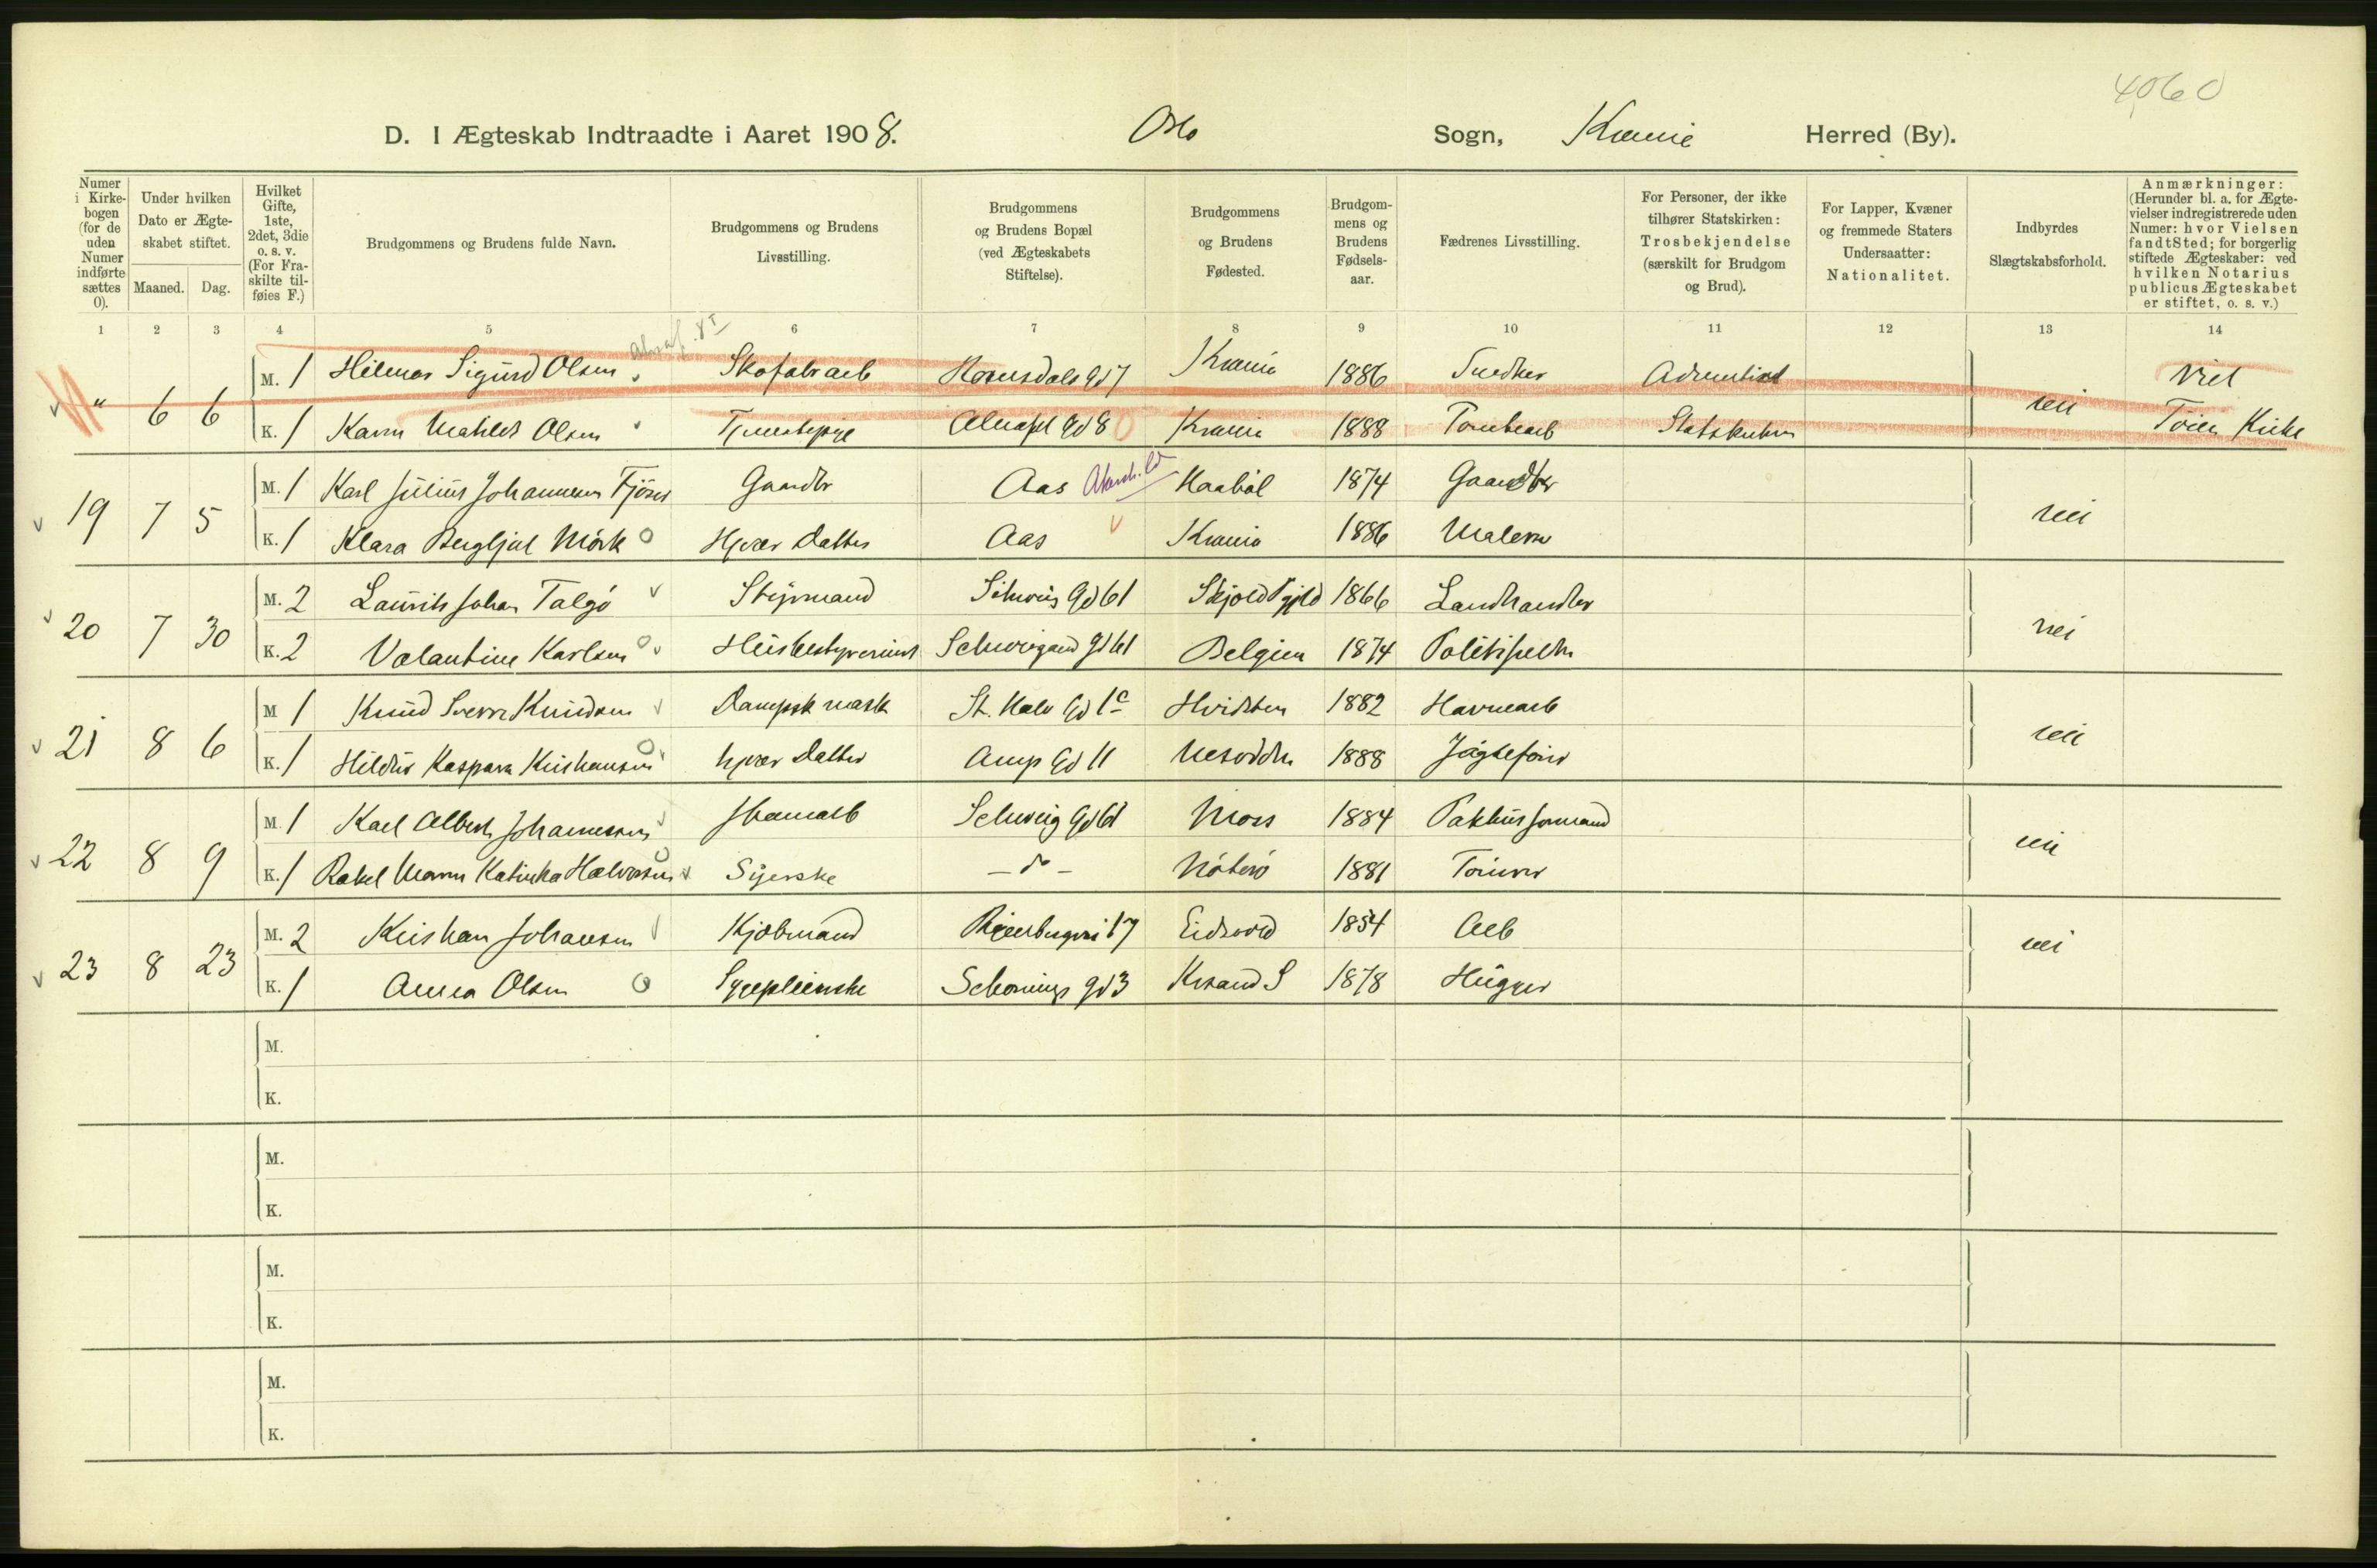 4060
D. I Ægteskab Indtraadte i Aaret 1908. Oslo Sogn, Krania Herred (By).
Numer i Kirkebogen (for de uden Numer indførte sættes 0).
Under hvilken Dato er Ægteskabet stiftet.
Maaned. Dag.
Hvilket Gifte, 1ste, 2det, 3die o. s. v. (For Fraskilte tilføies F.)
Brudgommens og Brudens fulde Navn.
Brudgommens og Brudens Livsstilling.
Brudgommens og Brudens Bopæl (ved Ægteskabets Stiftelse).
Brudgommens og Brudens Fødested.
Brudgommens og Brudens Fødselsaar.
Fædrenes Livsstilling.
For Personer, der ikke tilhører Statskirken: Trosbekjendelse (særskilt for Brudgom og Brud).
For Lapper, Kvæner og fremmede Staters Undersaatter: Nationalitet.
Indbyrdes Slægtskabsforhold.
Anmærkninger: (Herunder bl. a. for Ægtevielser indregistrerede uden Numer: hvor Vielsen fandt Sted; for borgerlig stiftede Ægteskaber: ved hvilken Notarius publicus Ægteskabet er stiftet, o. s. v.)
1 2 3 4 5 6 7 8 9 10 11 12 13 14
" 6 6 M. 1 Hilmar Sigurd Olsen Skofabrarb Romsdals Gd 7 Krania 1886 Snedker Adventist nei Viet
K. 1 Karen Mathilde Olsen Tjenestepige Alnafet Gd 8 Krania 1888 Tomtearb Statskirken Tøien Kirke
19 7 5 M. 1 Karl Julius Johannesen Fjöser Gaardbr Aas Akersh. Haabøl 1874 Gaardbr nei
K. 1 Klara Bergljot Mörk Hjvær Datter Aas Krania 1886 Maler
20 7 30 M. 2 Laurits Johan Talgö Styrmand Schweig Gd 61 Skjold Pgjld 1866 Landhandler nei
K. 2 Valantine Karlsen Husbestyrerinde Schweigaard Gd 61 Belgien 1874
21 8 6 M 1 Knud Sverre Knudsen Dampsk mask St. Halv Gd 1c Hvidsten 1882 Havnearb nei
K. 1 Hildur Kaspara Kristiansen hjvær Datter Amp Gd 11 Nesodden 1888 Jagtefører
22 8 9 M. 1 Karl Albert Johannesen Schweig Gd 61 Moss 1884 Pakhusformand nei
K. 1 Rakel Maren Katinka Halvorsen Syerske – do – Nöterö 1881 Tömrer
23 8 23 M. 2 Kristian Johansen Kjøbmand 17 Eidsvold 1854 Arb nei
K. 1 Anna Olsen Sygepleierske Schönings Gd 3 Krsand S 1878 Hugger
M.
K.
M.
K.
M.
K.
M.
K.